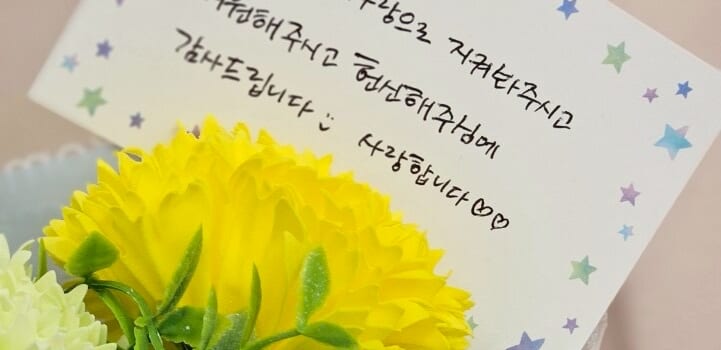 사랑으로 지켜봐주시고
지원해주시고 헌신해주심에
감사드립니다 :)
사랑합니다♡♡